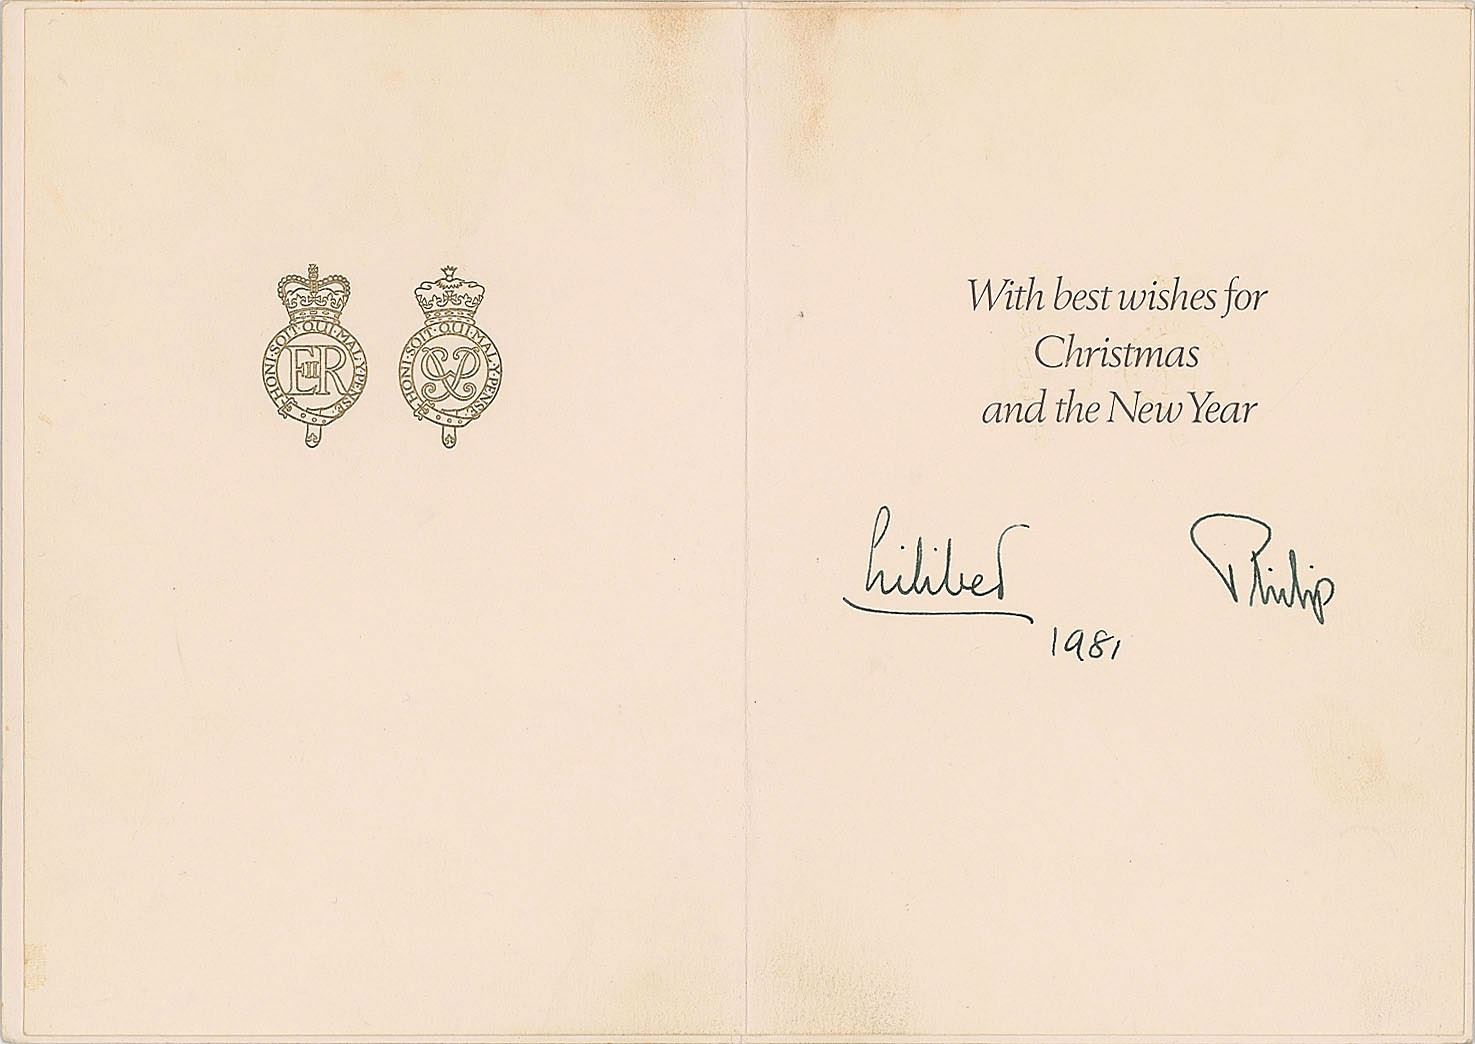 HONI·SOIT·QUI·MAL·Y·PENSE
EIIR
HONI·SOIT·QUI·MAL·Y·PENSE
With best wishes for
Christmas
and the New Year
Lilibet
Philip
1981